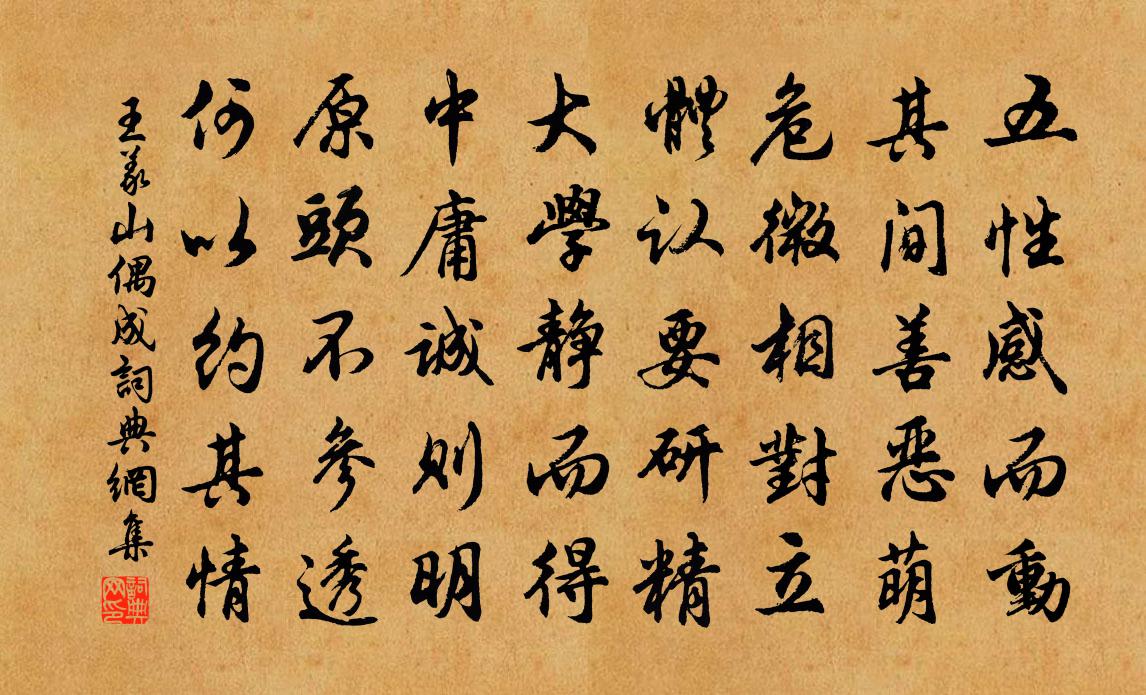 五性感而動
其间善惡萌
危微相對立
體认要研精
大學静而得
中庸誠则明
原頭不參透
何以約其情
王義山偶成詞典網集
詞典网印